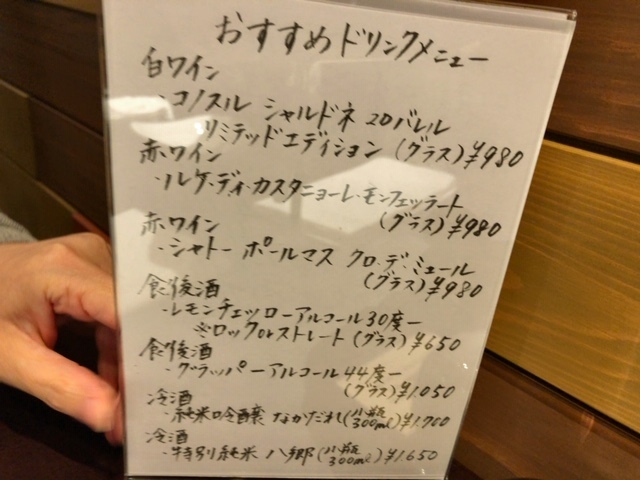 おすすめドリンクメニュー
白ワイン
・コノスル シャルドネ 20バレル
リミテッドエディション (グラス) ¥980
赤ワイン
・ルケ・ディ・カスタニョーレ・モンフェッラート
(グラス) ¥980
赤ワイン
・シャトー ポールマス クロ・デ・ミュール
(グラス) ¥980
食後酒
・レモンチェッローアルコール30度ー
※ロックorストレート (グラス) ¥650
食後酒
・グラッパーアルコール44度ー
(グラス) ¥1.050
冷酒
・純米吟醸 なかだれ (小瓶 300ml) ¥1.700
冷酒
・特別純米 八郷 (小瓶 300ml) ¥1.650